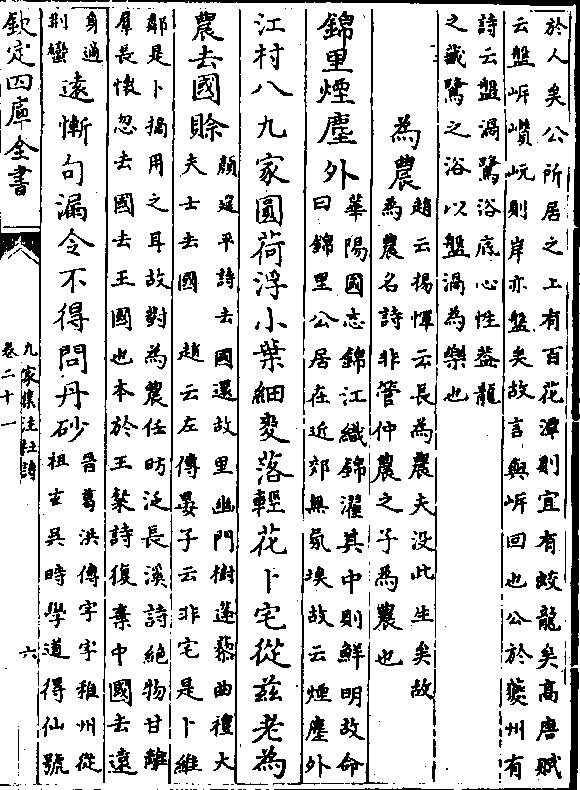 於人矣公所居之上有百花潭則宜有蛟龍矣高唐賦
云盤岓巑岏則岸亦盤矣故言與岓回也公於夔州有
詩云盤渦鷺浴底心性蓋龍
之蔵鷺之浴以盤渦為樂也
為農
趙云楊惲云長為農夫没此生矣故
為農名詩非管仲農之子為農也
錦里煙塵外
華陽國志錦江織錦濯其中則鮮明故命
曰錦里公居在近郊無氛埃故云煙塵外
江村八九家圓荷浮小葉細麥落輕花卜宅從兹老為
農去國賖
顔延平詩去國還故里幽門樹蓬藜曲禮大
夫士去國 趙云左傳晏子云非宅是卜維
鄰是卜摘用之耳故對為農任昉泛長溪詩絶物甘離
羣長懐忽去國去王國也本於王粲詩復棄中國去遠
身適
荆蠻
遠慚句漏令不得問丹砂
晉葛洪傳字字稚州從
祖𤣥吳時學道得仙號
欽定四庫全書
九家集注杜詩
卷二十一
六